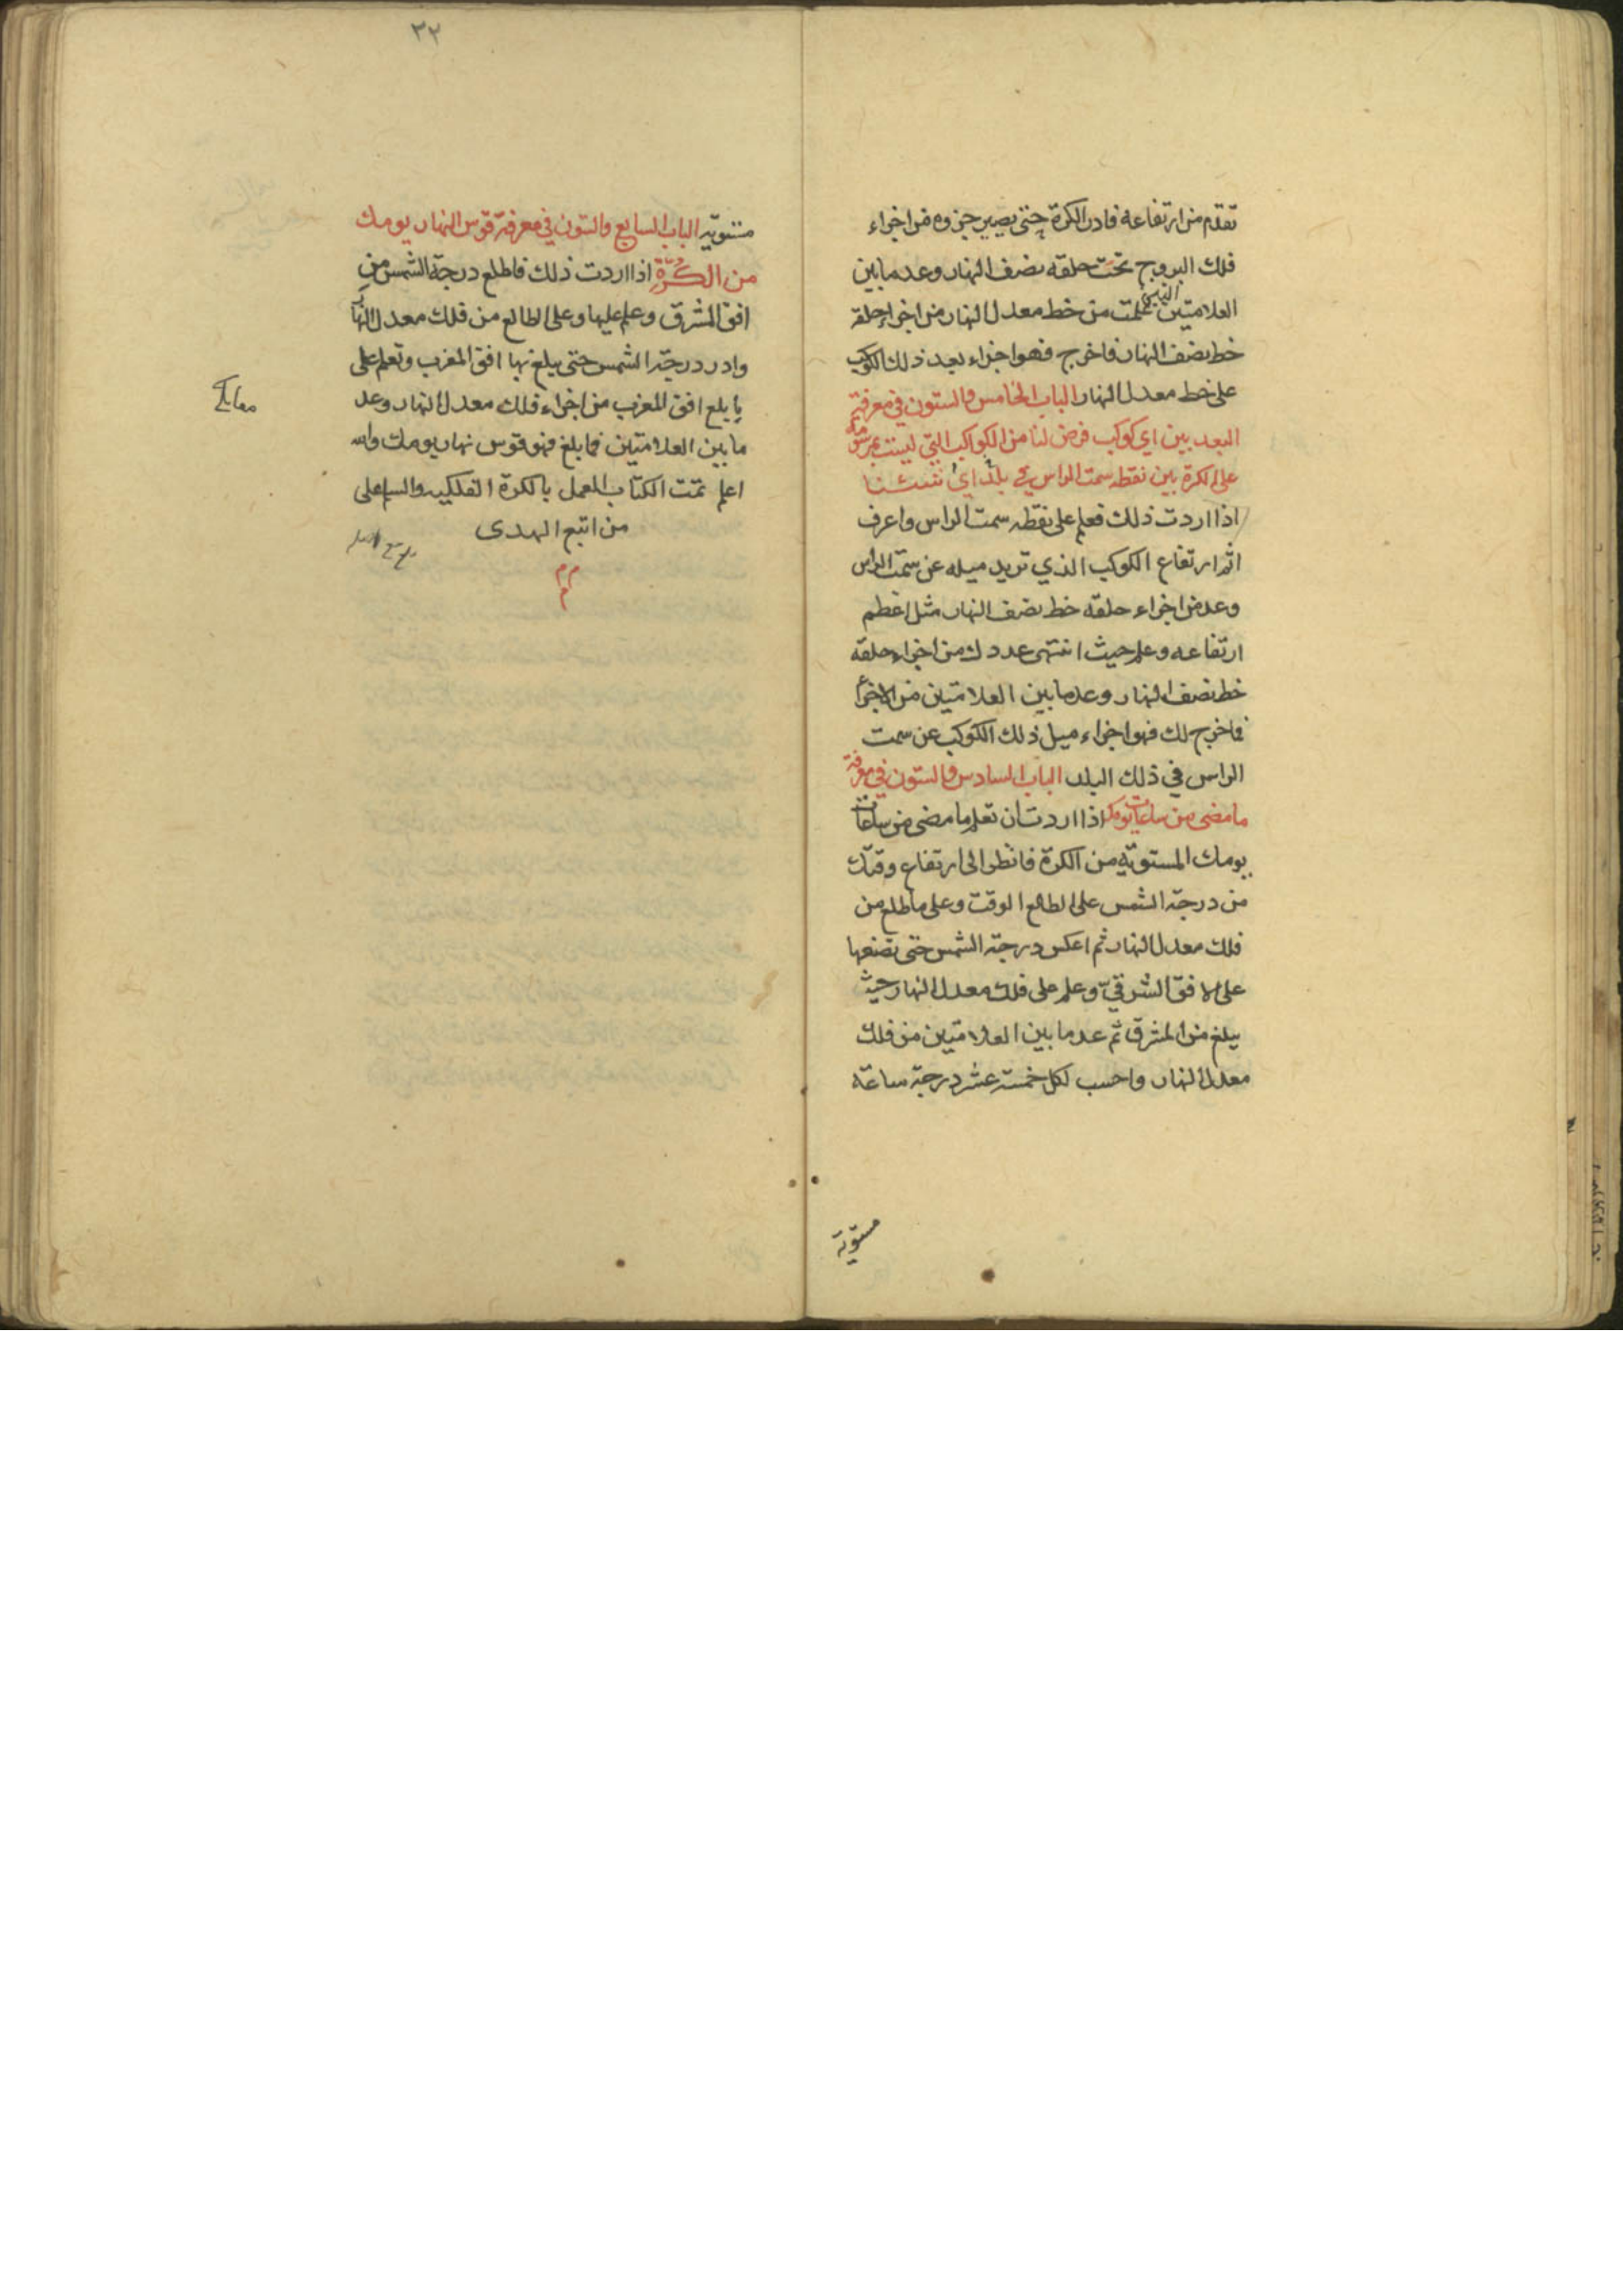 تقدم من ارتفاعه فادر الكرة حتى يصير جزوه من اجزاء
فلك البروج تحت حلقه نصف النهار وعد ما بين
العلامتين التي علمت من خط معدل النهار من اجزاء حلقة
خط نصف النهار فما خرج فهو اجزاء بعد ذلك الكوكب
على خط معدل النهار الباب الخامس والستون في معرفة
البعد بين اي كوكب فرض لنا من الكواكب التي ليست بمرسومة
على الكرة بين نقطه سمت الراس في بلد اي شئنا
اذا اردت ذلك فعلم على نقطه سمت الراس واعرف
ارتفاع الكوكب الذي تريد ميله عن سمت الراس
وعد من اجزاء حلقة خط نصف النهار مثل اعظم
ارتفاعه وعلم حيث انتهى عددك من اجزاء حلقة
خط نصف النهار وعد ما بين العلامتين من الاجزأ
فما خرج لك فهو اجزاء ميل ذلك الكوكب عن سمت
الراس في ذلك البلد الباب السادس والستون في معرفة
ما مضى من ساعات يومك اذا اردت ان تعلم ما مضى من ساعات
يومك المستويّه من الكرة فانظر الى ارتفاع وقتك
من درجة الشمس على الطالع الوقت وعلى ما طلع من
فلك معدل النهار ثم اعكس درجة الشمس حتى تضعها
على الافق الشرقيّ وعلم على فلك معدل النهار حيث
يبلغ من المشرق ثم عد ما بين العلامتين من فلك
معدل النهار واحسب لكل خمسة عشر درجة ساعة
مستويّة
٣٢
مستويّه الباب السابع والستون في معرفة قوس النهار يومك
من الكُرّةِ اذا اردت ذلك فاطلع درجة الشمس من
افق المشرق وعلم عليها وعلى الطالع من فلك معدل النهار
وادر درجة الشمس حتى يبلغ بها افق المغرب وتعلم على
ما بلغ افق المغرب من اجزاء فلك معدل النهار وعد
ما بين العلامتين فما بلغ فهو قوس نهار يومك والله
اعلم تمت الكتاب العمل بالكرة الفلكيه والسلم على
من اتبع الهدى
م م
م